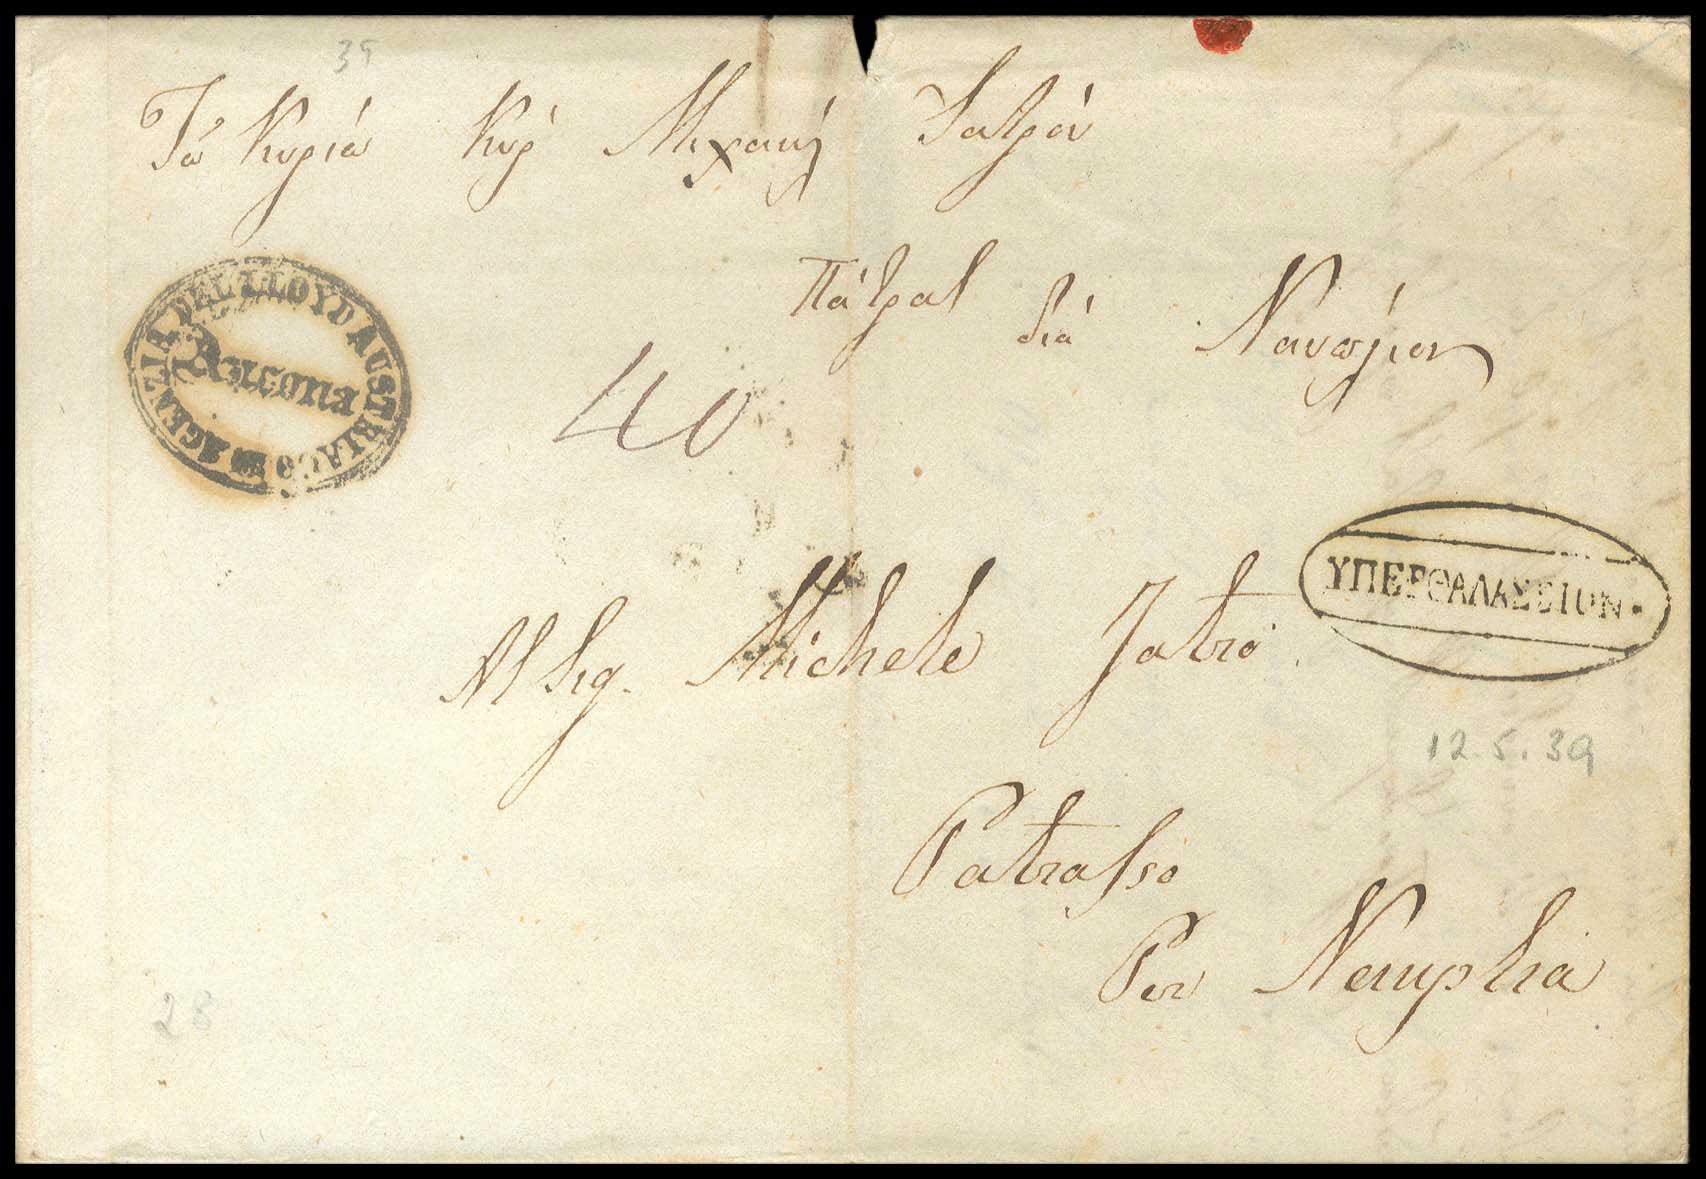 39
Τω Κυρίω Κύρ Μιχαήλ Ιατρόν
Πάτρας διά Ναυπλιον
AGENZIA DEL LLOYD AUSTRIACO
Ancona
40
ΥΠΕΡΘΑΛΑΣΣΙΟΝ.
Al Sig. Michele Jatro
12.5.39
Patrasso
Per Nauplia
28